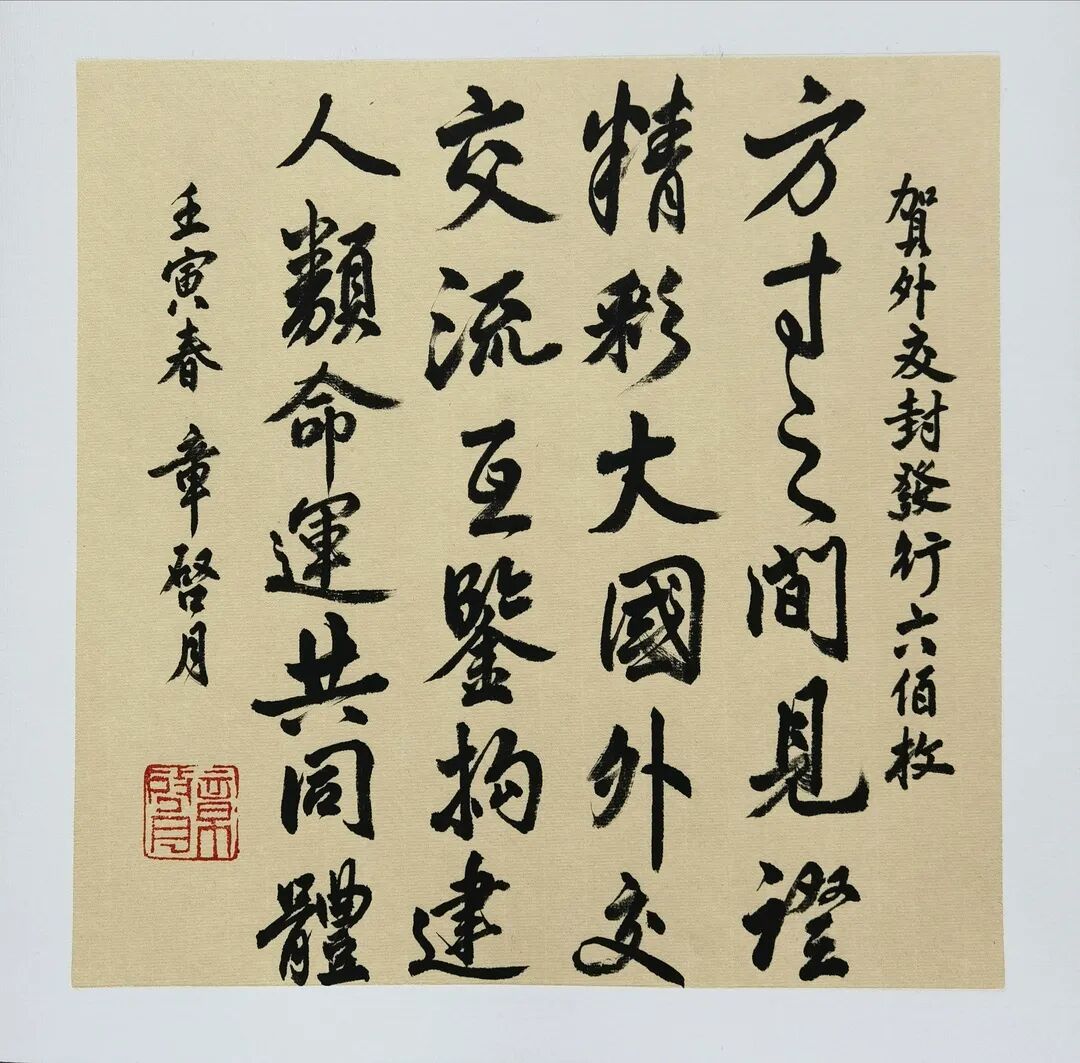 賀外交封發行六佰枚
方寸之間見證
精彩大國外交
交流互鑒構建
人類命運共同體
壬寅春 章啓月
章啓月